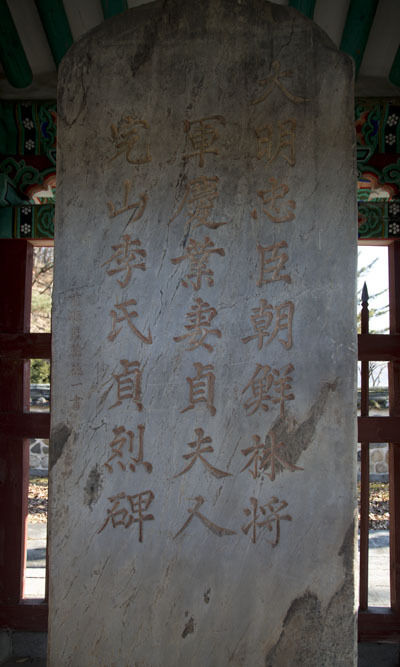 大明忠臣朝鮮林將
軍慶業妻貞夫人
完山李氏貞烈碑